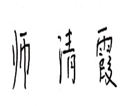 师清霞